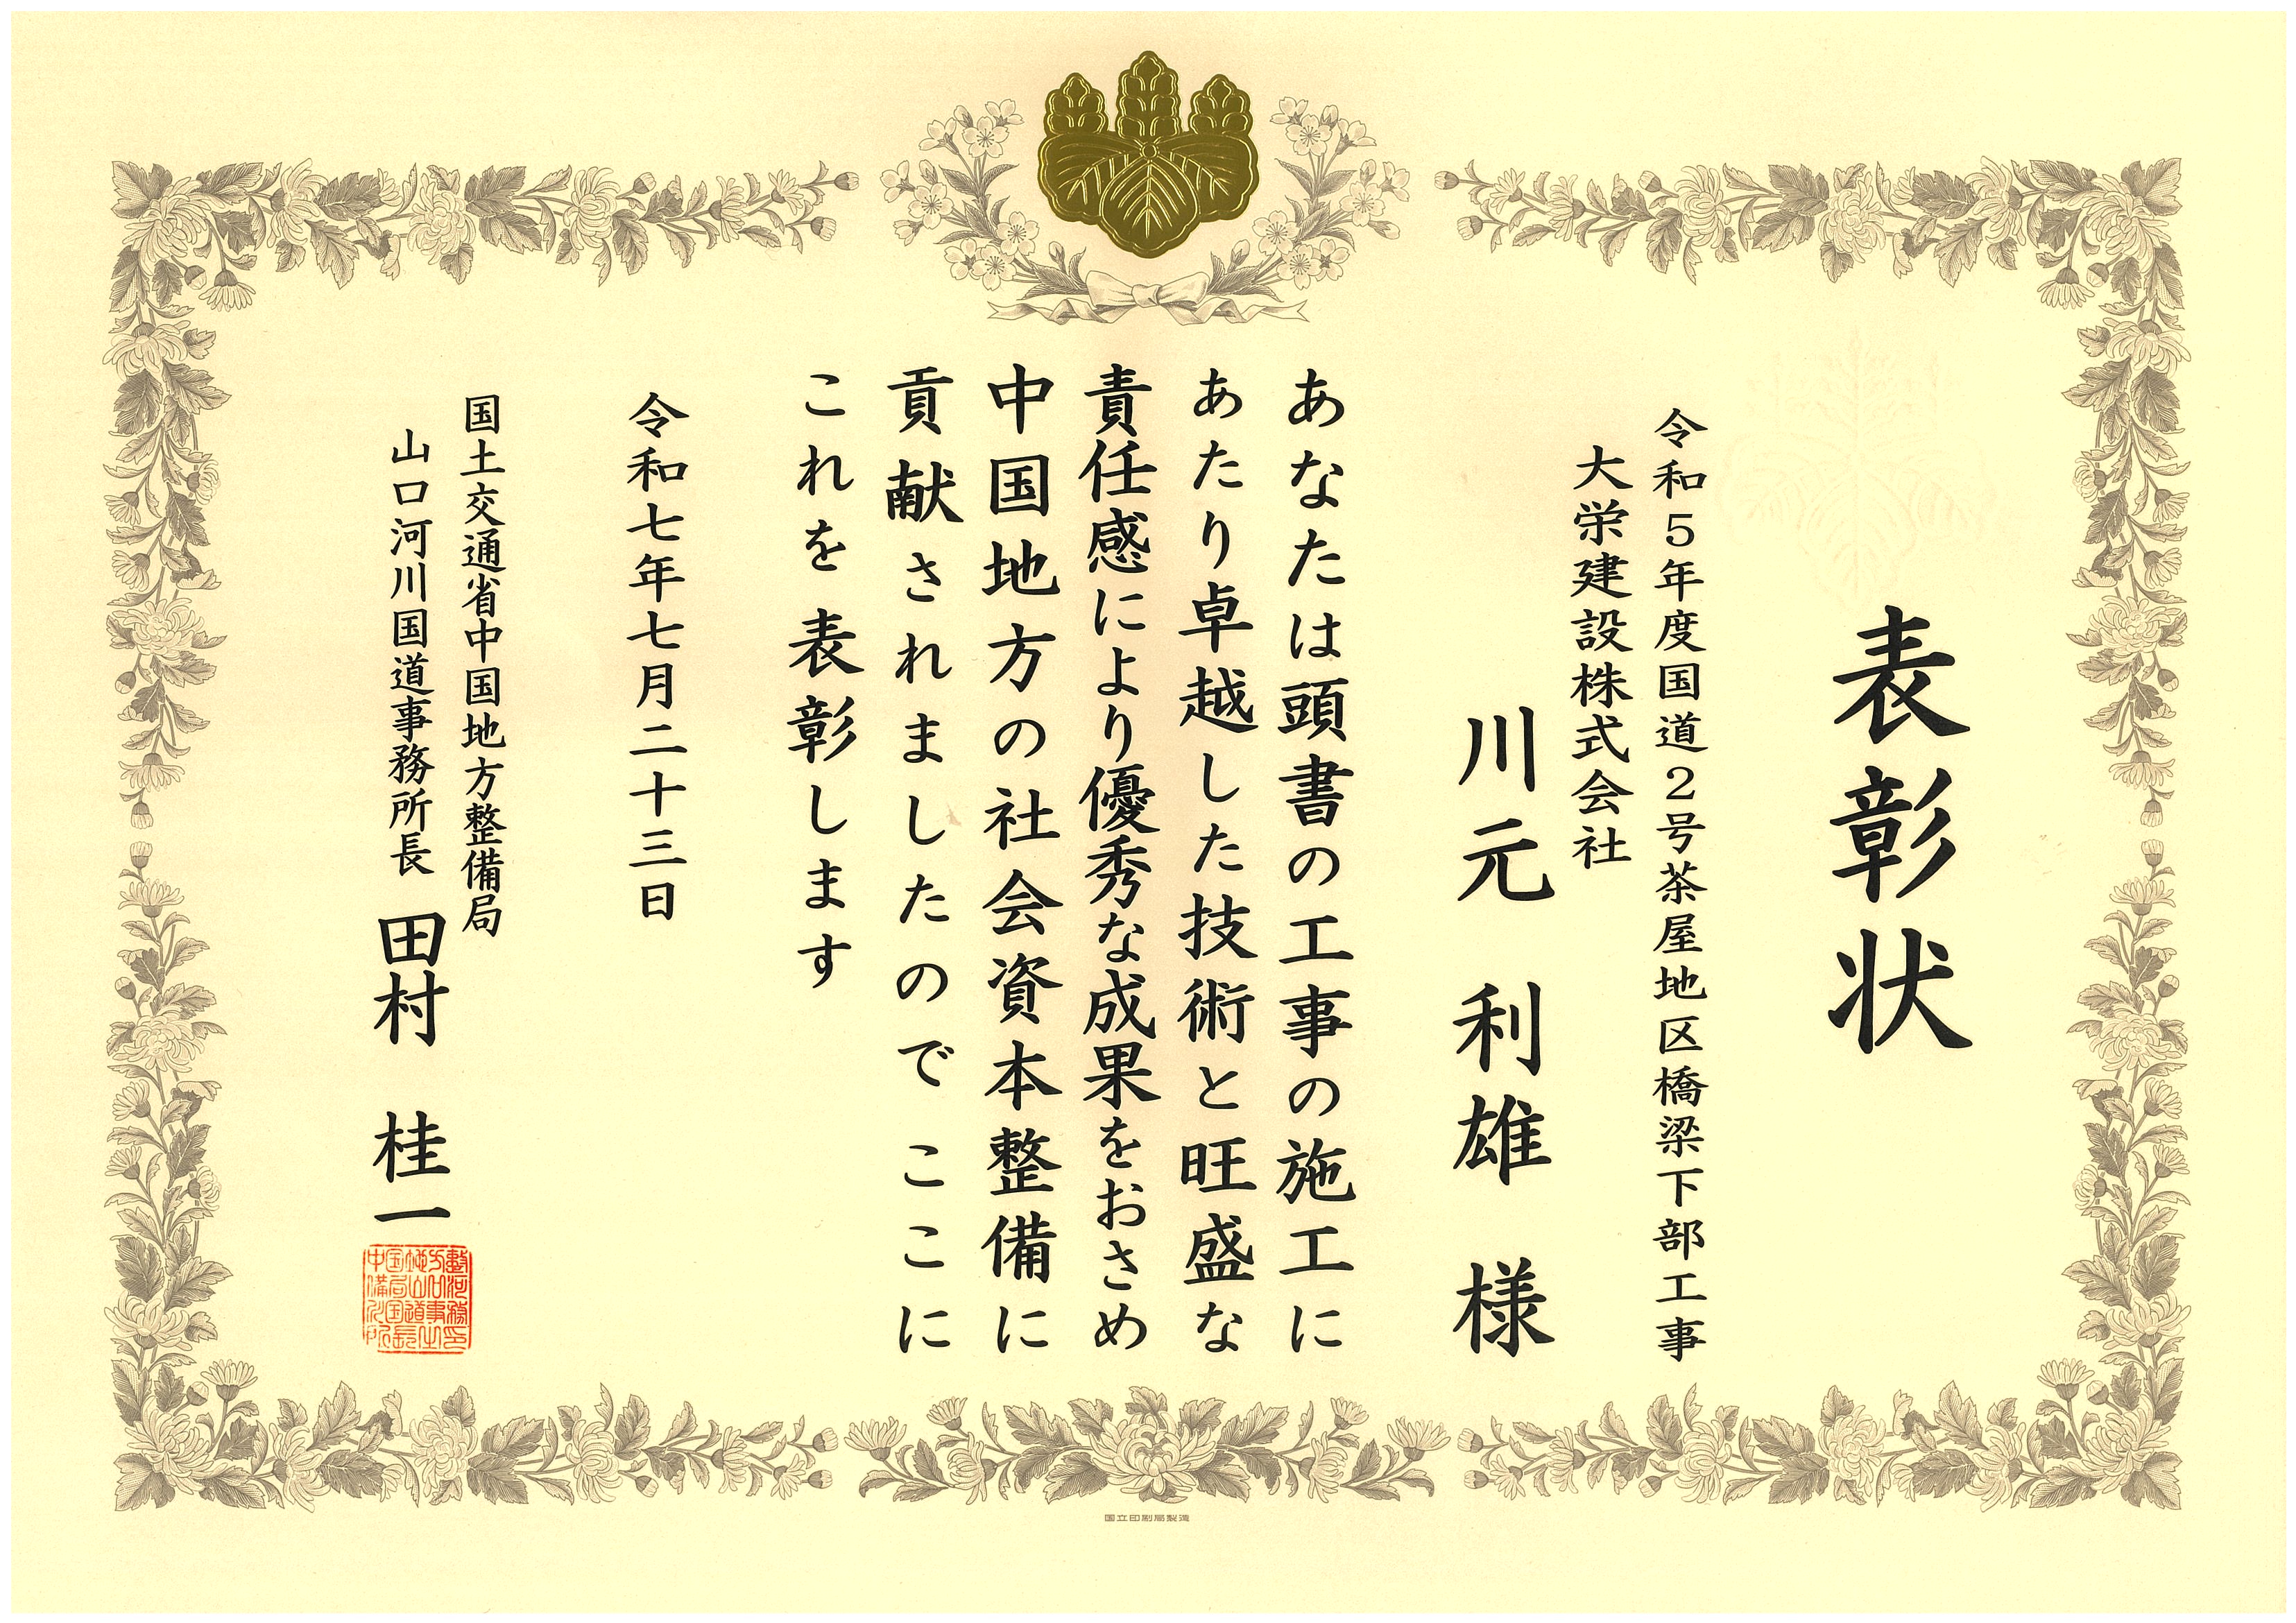 表彰状
令和5年度国道2号茶屋地区橋梁下部工事
大栄建設株式会社
川元 利雄 様
あなたは頭書の工事の施工に
あたり卓越した技術と旺盛な
責任感により優秀な成果をおさめ
中国地方の社会資本整備に
貢献されましたのでここに
これを表彰します
令和七年七月二十三日
国土交通省中国地方整備局
山口河川国道事務所長 田村 桂一
国立印刷局製造